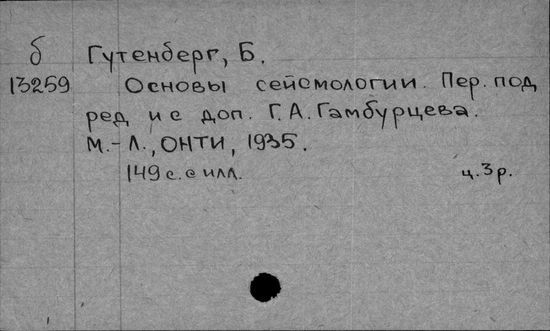 б Гутенберг, Б.
13259 Основы сейсмологии. Пер. под
ред и с доп. Г.А. Гамбурцева.
М.-Л., ОНТИ, 1935.
149 с. с илл. ц. 3 р.